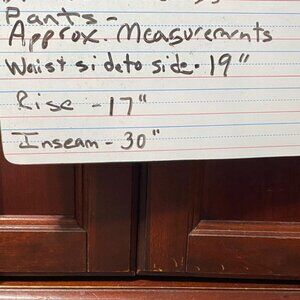 Pants -
Approx. Measurements
Waist side to side - 19"
Rise - 17"
Inseam - 30"